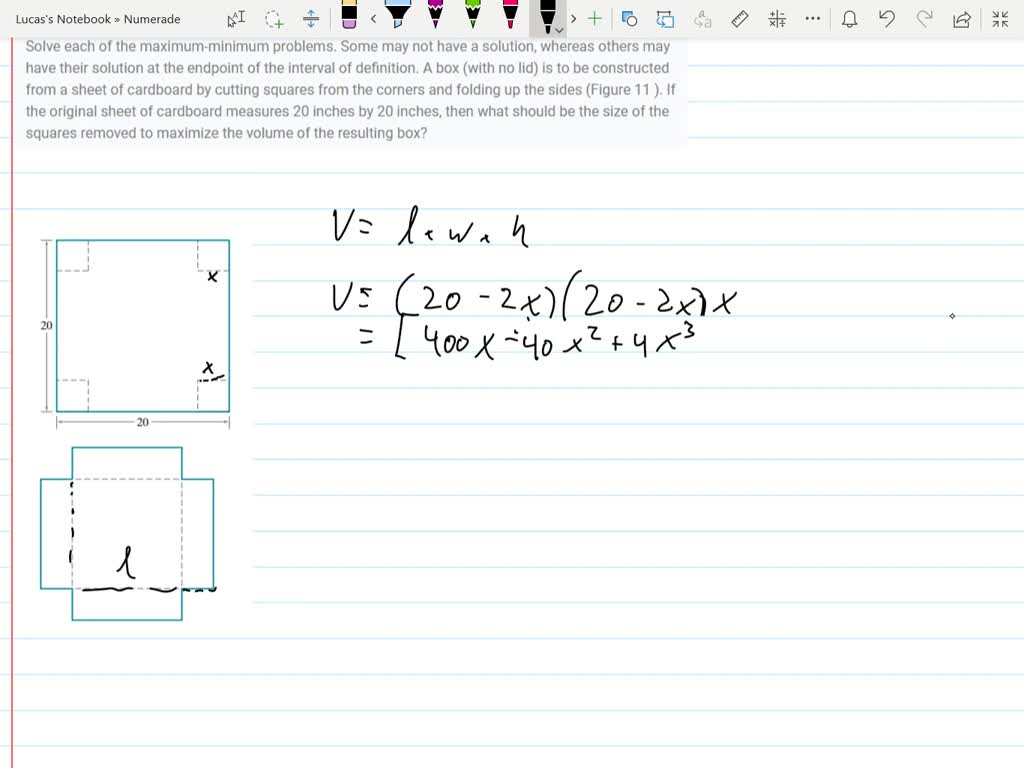 Lucas's Notebook » Numerade
Solve each of the maximum-minimum problems. Some may not have a solution, whereas others may
have their solution at the endpoint of the interval of definition. A box (with no lid) is to be constructed
from a sheet of cardboard by cutting squares from the corners and folding up the sides (Figure 11 ). If
the original sheet of cardboard measures 20 inches by 20 inches, then what should be the size of the
squares removed to maximize the volume of the resulting box?
V = l · w · h
x
V = (20 - 2x)(20 - 2x)x
20
= [400x - 40x² + 4x³
x
20
l